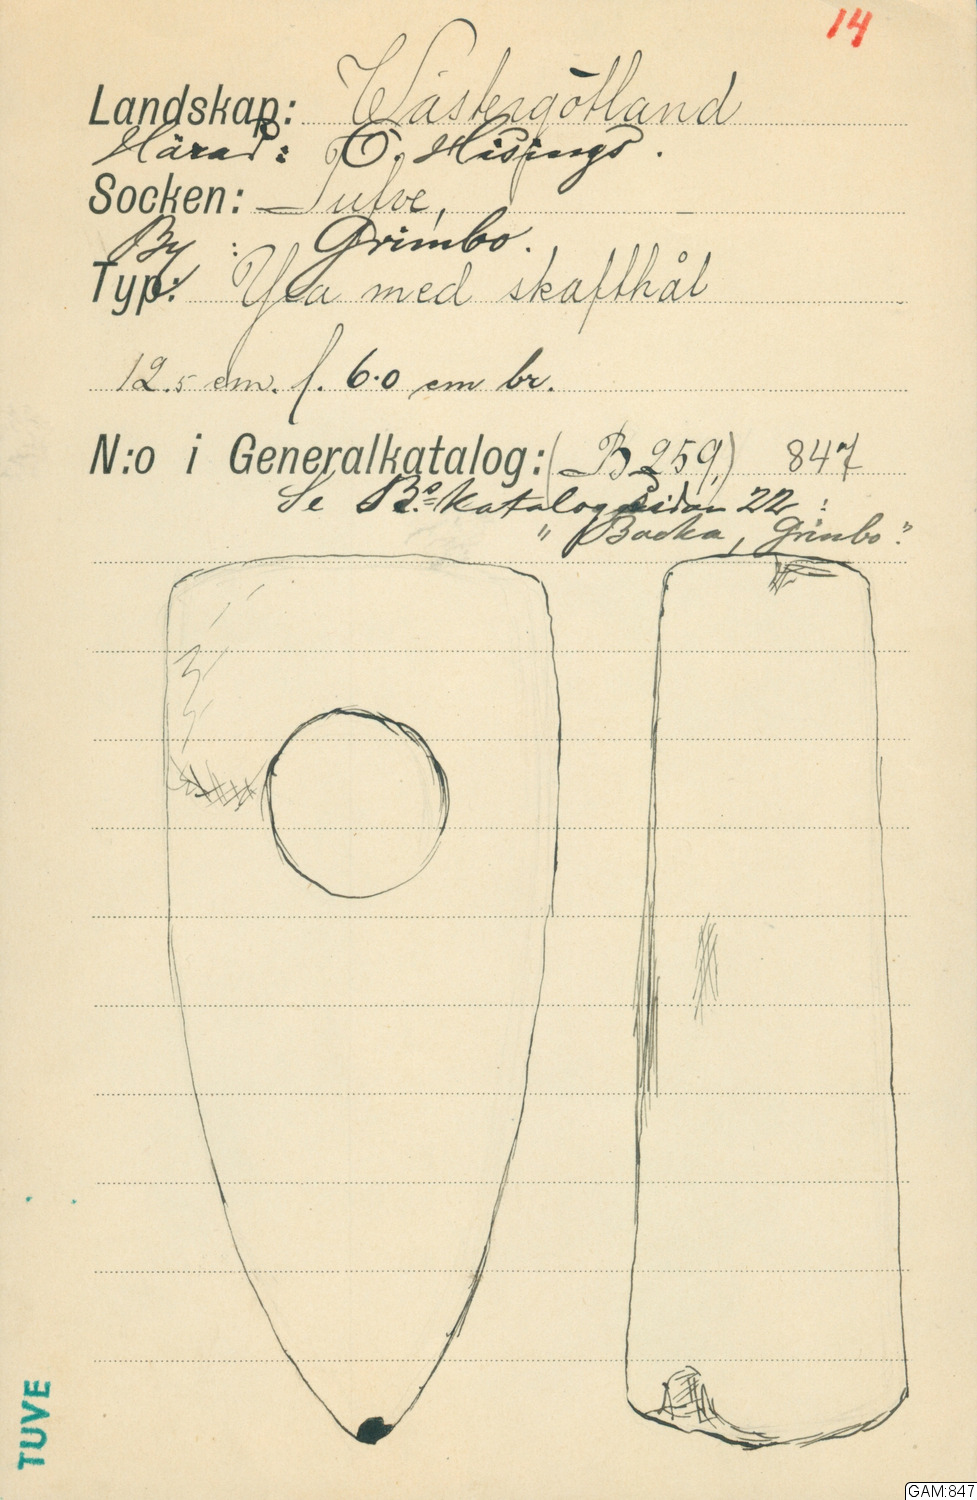 14
Landskap: Västergötland
Härad: Ö. Hisings.
Socken: Tufve,
By : Grimbo.
Typ: Yxa med skafthål
12.5 cm. l. 6.0 cm br.
N:o i Generalkatalog: (B 259,) 847
Se B.=katalog sidan 22:
"Backa, Grimbo".
TUVE
GAM:847